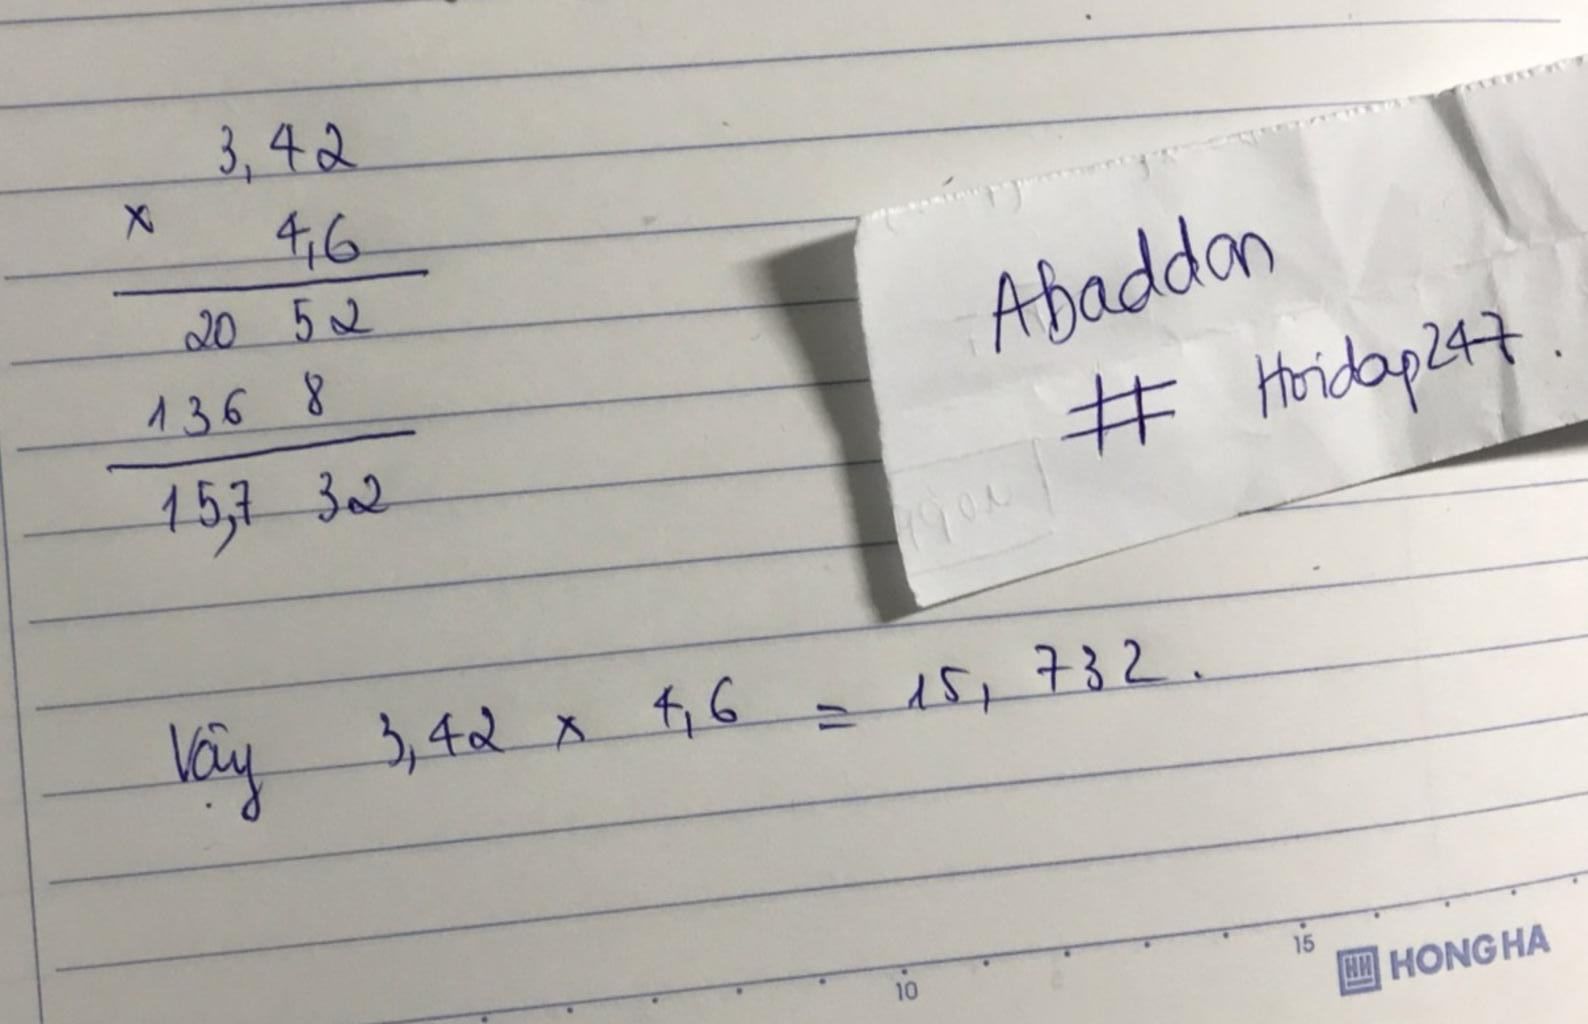 3,42
x
4,6
20 52
136 8
15,7 32
Vậy 3,42 x 4,6 = 15,732.
Abaddon
# Hoidap247.
10
15
HH HONG HA